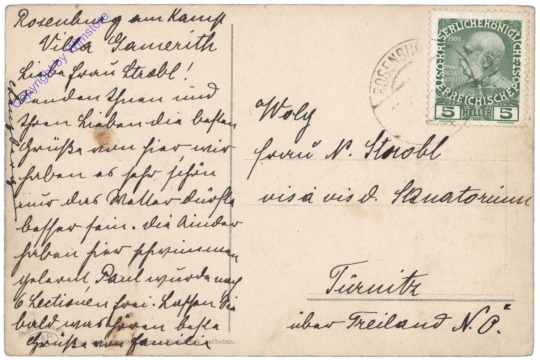 Rosenburg am Kamp
Villa Gamerith
Liebe Frau Strobl!
Senden Ihnen und
Ihren Lieben die besten
Grüße von hier wir
haben es sehr schön
nur das Wetter dürfte
besser sein. die Kinder
haben hier schwimmen
gelernt Paul wurde nach
6 Lectionen frei. Lassen Sie
bald was hören beste
Grüße von Familie
Copyright by
KAISERLICHE KÖNIGLICHE
ÖSTERREICHISCHE
5 HELLER 5
ROSENBU
Frau N. Strobl
vis á vis d. Sanatorium
Türnitz
über Freiland N.Ö.